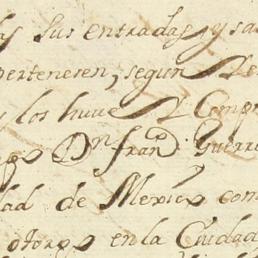 sus entradas, y sa
pertenesen, segun
los huve Compr
Dn. franco. Guerre
dad de Mexico com
otorgo en la Ciudad